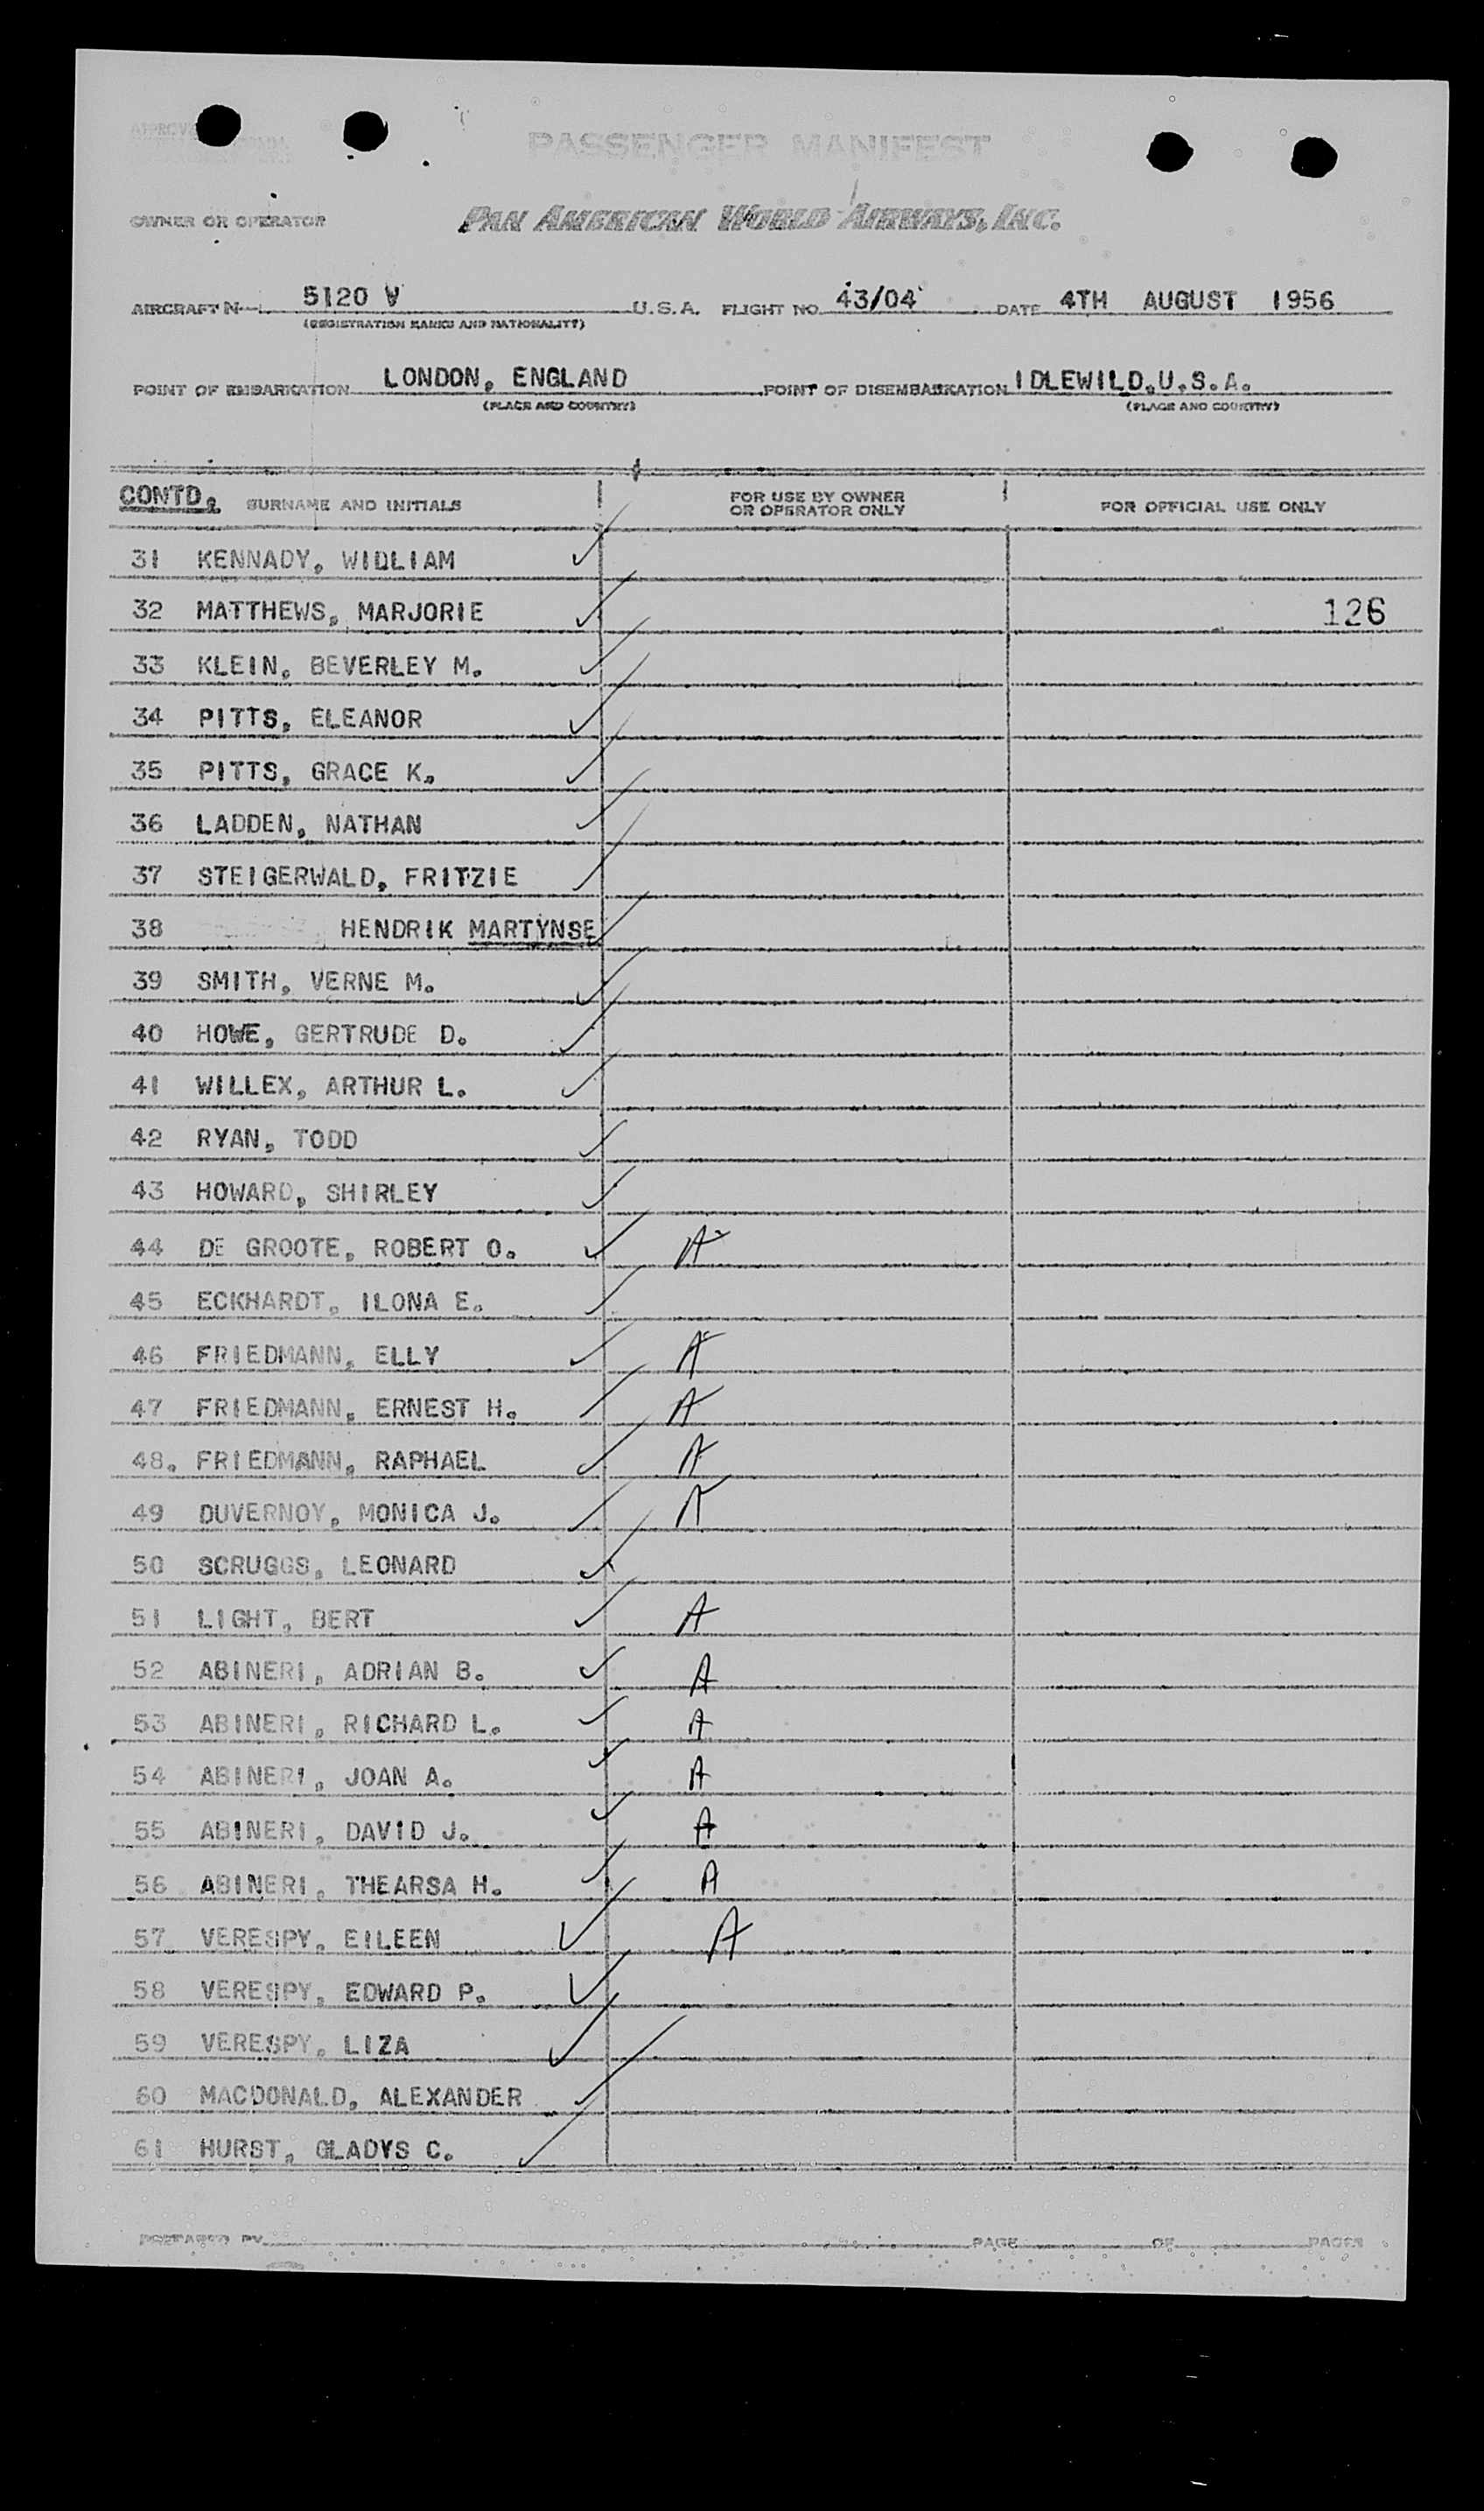 PASSENGER MANIFEST
OWNER OR OPERATOR PAN AMERICAN WORLD AIRWAYS, INC.
AIRCRAFT N 5120 V U.S.A. FLIGHT NO. 43/04 DATE 4TH AUGUST 1956
(REGISTRATION MARKS AND NATIONALITY)
POINT OF EMBARKATION LONDON, ENGLAND POINT OF DISEMBARKATION IDLEWILD.U.S.A.
(PLACE AND COUNTRY) (PLACE AND COUNTRY)
CONTD. SURNAME AND INITIALS FOR USE BY OWNER OR OPERATOR ONLY FOR OFFICIAL USE ONLY
31 KENNADY, WIDLIAM ✓
32 MATTHEWS, MARJORIE ✓ 126
33 KLEIN, BEVERLEY M. ✓
34 PITTS, ELEANOR ✓
35 PITTS, GRACE K. ✓
36 LADDEN, NATHAN ✓
37 STEIGERWALD, FRITZIE ✓
38 HENDRIK MARTYNSE ✓
39 SMITH, VERNE M. ✓
40 HOWE, GERTRUDE D. ✓
41 WILLEX, ARTHUR L. ✓
42 RYAN, TODD ✓
43 HOWARD, SHIRLEY ✓
44 DE GROOTE, ROBERT O. ✓ A
45 ECKHARDT, ILONA E. ✓
46 FRIEDMANN, ELLY ✓ A
47 FRIEDMANN, ERNEST H. ✓ A
48. FRIEDMANN, RAPHAEL ✓ A
49 DUVERNOY, MONICA J. ✓ A
50 SCRUGGS, LEONARD ✓
51 LIGHT, BERT ✓ A
52 ABINERI, ADRIAN B. ✓ A
53 ABINERI, RICHARD L. ✓ A
54 ABINERI, JOAN A. ✓ A
55 ABINERI, DAVID J. ✓ A
56 ABINERI, THEARSA H. ✓ A
57 VERESPY, EILEEN ✓ A
58 VERESPY, EDWARD P. ✓
59 VERESPY, LIZA ✓
60 MACDONALD, ALEXANDER ✓
61 HURST, GLADYS C. ✓
PREPARED BY PAGE OF PAGES